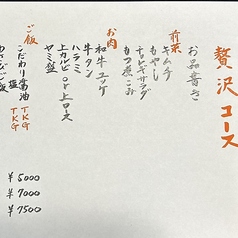 贅沢コース
お品書き
前菜
キムチ
もやし
チョレギサラダ
もつ煮こみ
お肉
和牛ユッケ
牛タン
ハラミ
上カルビor上ロース
ヤミ盤
ご飯
こだわり醤油TKG
塩TKG
わさびご飯
¥5000
¥7000
¥7500